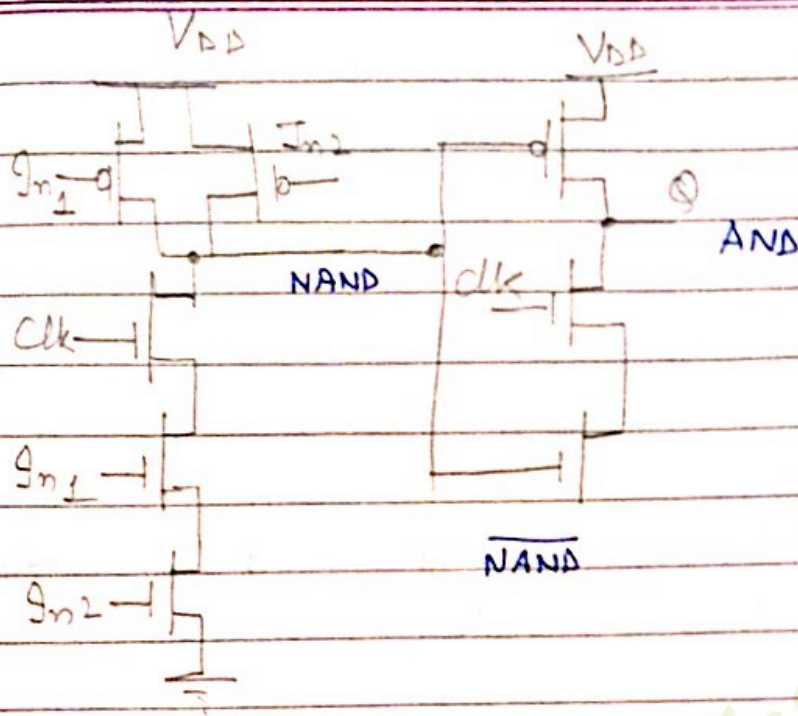 VDD
VDD
In1
In2
Q
AND
NAND
Clk
clk
In1
NAND
In2